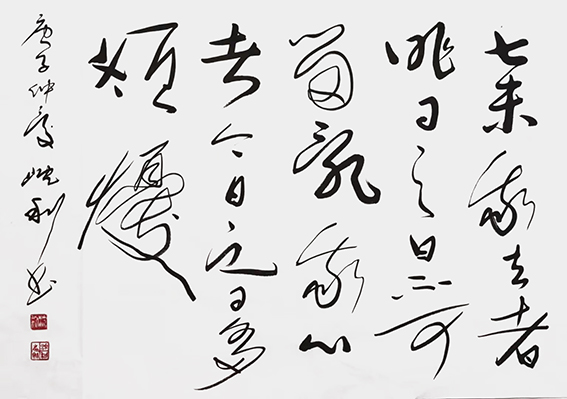 棄我去者
昨日之日不可
留亂我心
者今日之日多
煩懮
庚子仲夏利书